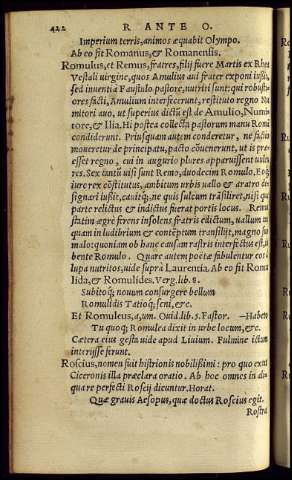 422 R ANTE O.
Imperium terris, animos æquabit Olympo.
Ab eo fit Romanus, & Romanensis.
Romulus, et Remus, fratres, filij fuere Martis ex Rhea
Vestali uirgine, quos Amulius aui frater exponi iussit,
sed inuenti à Faustulo pastore, nutriti sunt: qui robusti-
ores facti, Amulium interfecerunt, restituto regno Nu
mitori auo, ut superius dictũ est de Amulio, Numi-
tore, & Ilia. Hi postea collecta pastorum manu Romã
condiderunt. Priusquam autem conderetur, ne
moueretur de principatu, pacto cõuenerunt, ut is præ-
esset regno, cui in augurio plures apparuissent uultu-
res. Sex tantũ uisi sunt Remo, duodecim Romulo. Eoq;
iure rex cõstitutus, ambitum urbis uallo & aratro de-
signari iussit, cauitq; ne quis sulcum trãsiliret, nisi qua
parte relictus & indictus fuerat portis locus. Remus
statim ægrè ferens insolens fratris edictum, uallum
quam in ludibrium & contẽptum transilijt, magno suo
malo: quoniam ob hanc causam rastris interfectus est, iu
bente Romulo. Quare autem poetæ fabulentur eos à
lupa nutritos, uide suprà Laurentia. Ab eo fit Romu
lida, & Romulides. Verg. lib. 8.
Subitoq; nouum consurgere bellum
Romulidis Tatioq; seni, &c.
Et Romuleus, a, um. Ouid. lib. 5. Fastor. —Haben
Tu quoq; Romulea dixit in urbe locum, &c.
Cætera eius gesta uide apud Liuium. Fulmine ictum
interijsse ferunt.
Roscius, nomen fuit histrionis nobilißimi: pro quo extat
Ciceronis illa præclara oratio. Ab hoc omnes in ali-
qua re perfecti Roscij dicuntur. Horat.
Quæ grauis Aesopus, quæ doctus Roscius egit.
Rostra